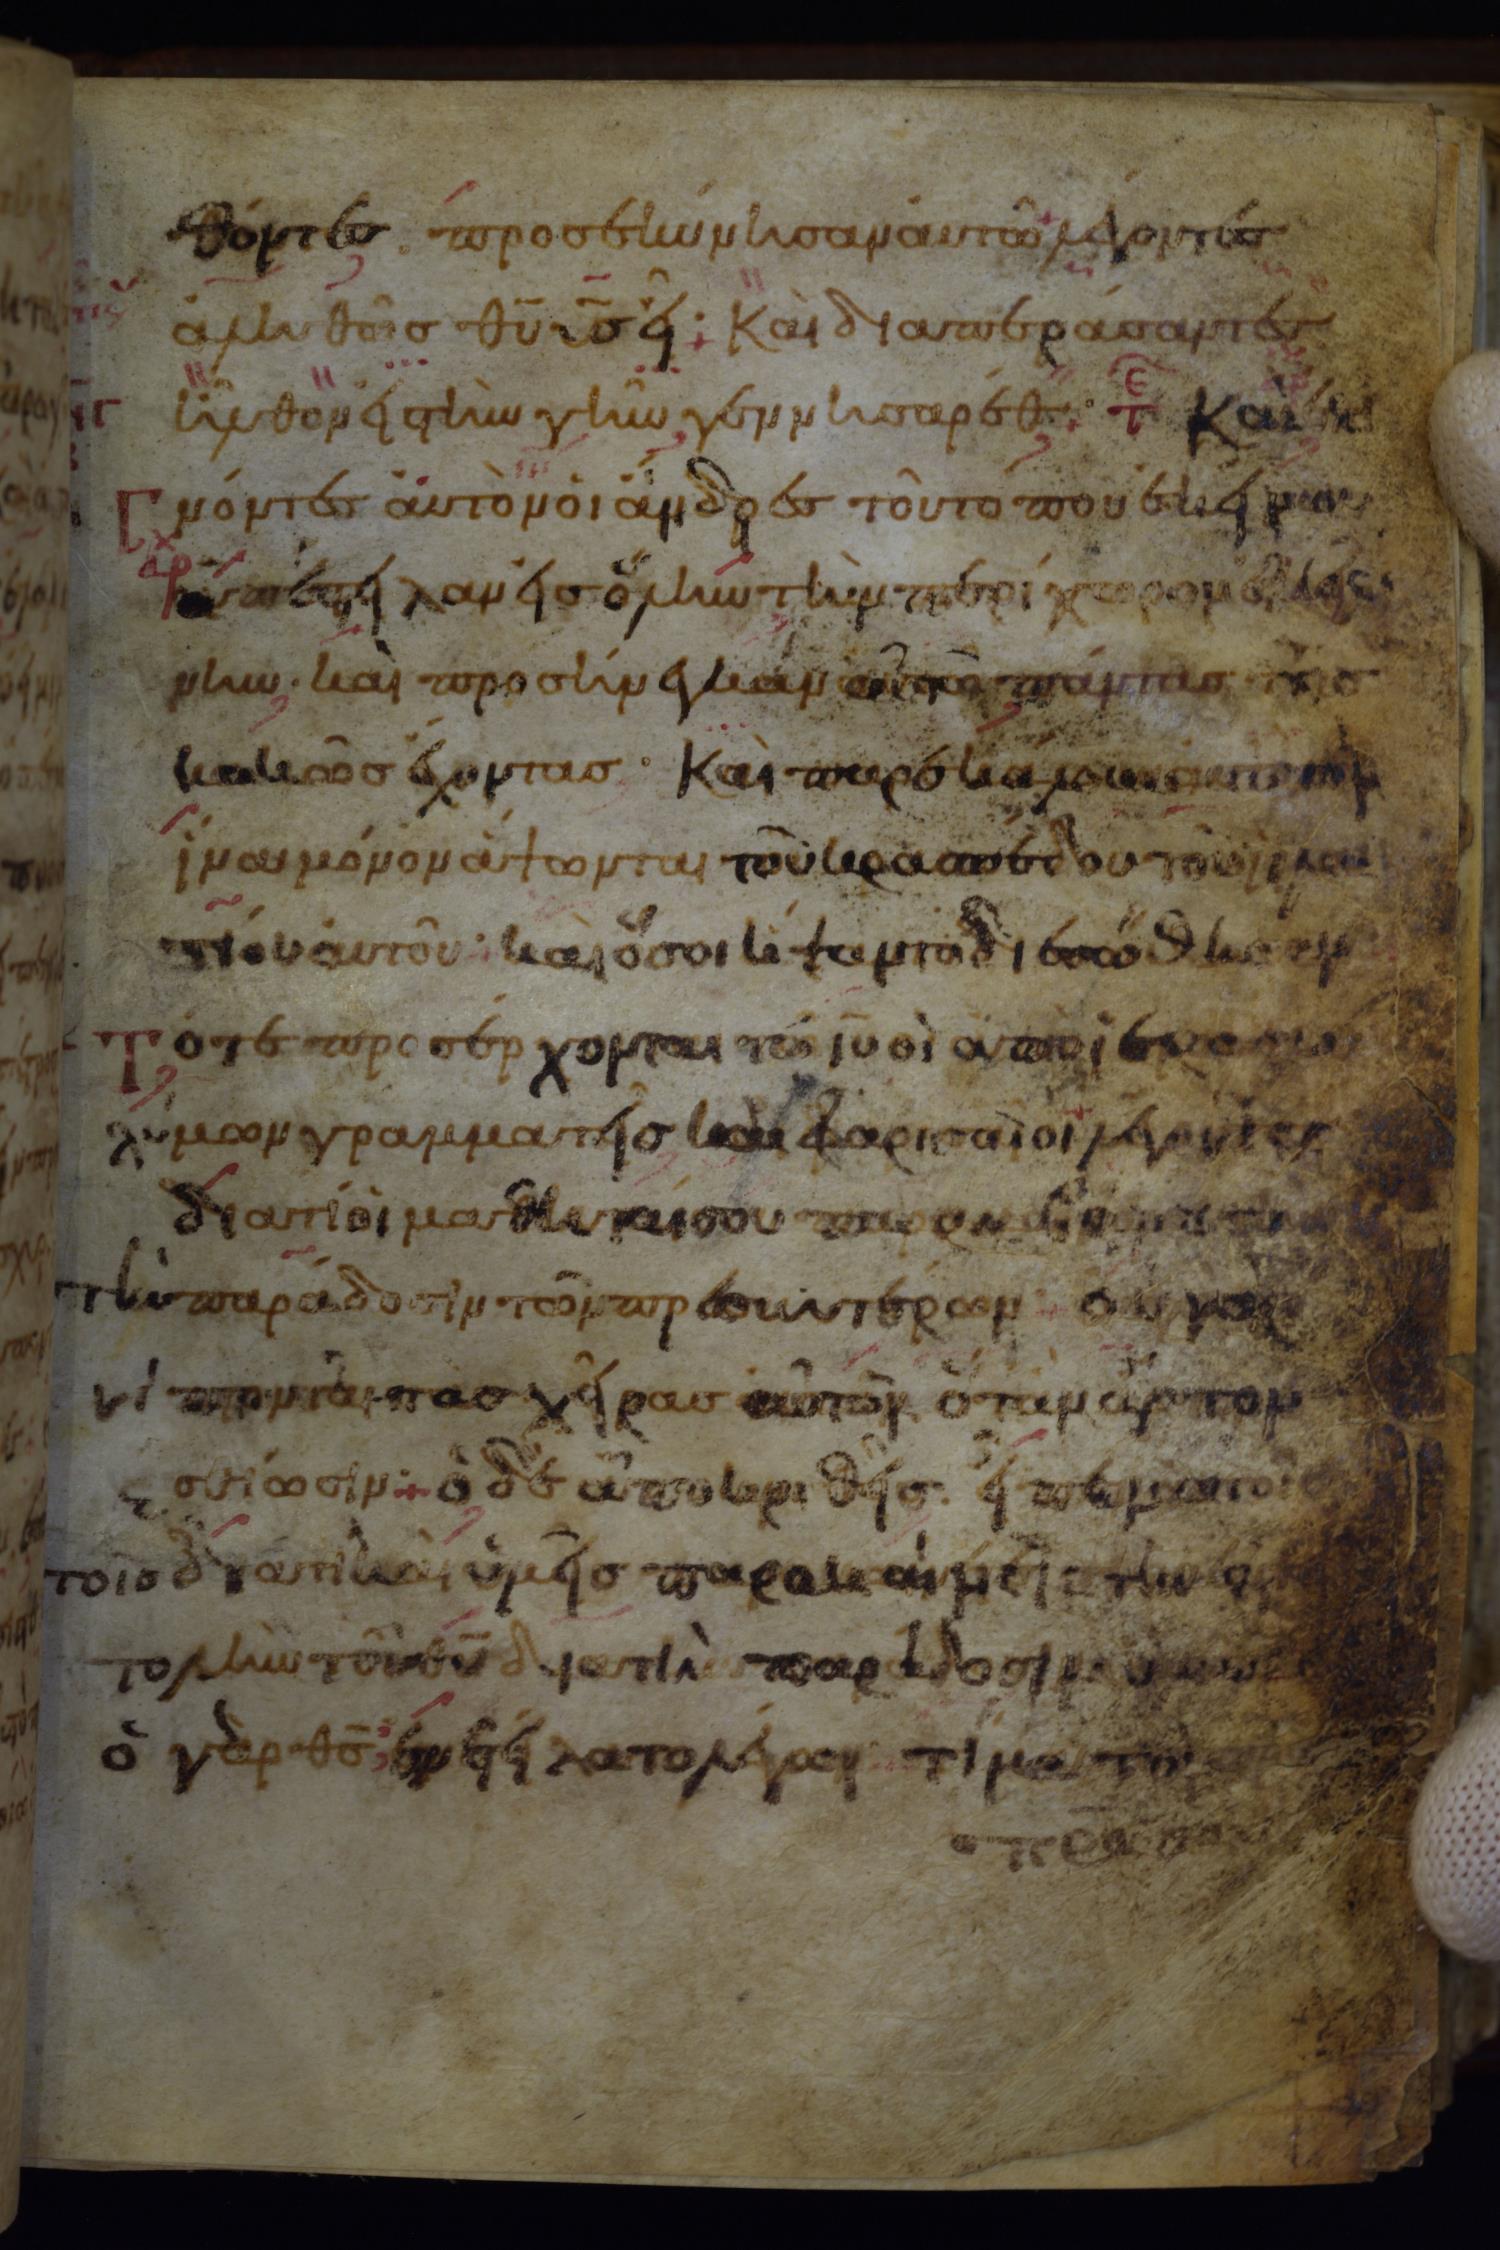 θόντες προσεκύνησαν αυτῶ λέγοντες
ἀληθῶς θῦ ῡς εῖ· Καὶ διαπεράσαντες
ἦλθον εἰς τὴν γῆν γεννησαρέθ· Καὶ ἐπι
γνόντες ἀυτὸν ὁι ἄνδρες τοῦ τόπου ἐκείνου
ἀπέστειλαν εἰς ὅλην τὴν περίχωρον ἐκεί
νην· καὶ προσήνεγκαν αὐτῶ πάντας τοὺς
κακῶς ἔχοντας· Καὶ παρεκάλουν αὐτὸν
ἵνα μόνον ἅψωνται τοῦ κρασπέδου τοῦ ἱμα
τίου ἀυτοῦ· καὶ ὅσοι ἥψαντο διεσώθησαν
Τότε προσέρχονται τῶ ῑῡ ὁι ἀπὸ ἱεροσο
λύμων γραμματεῖς καὶ φαρισαῖοι λέγοντες
διατί ὁι μαθηταί σου παραβαίνουσι
τὴν παράδοσιν τῶν πρεσβυτέρων· οὐ γὰρ
νίπτονται τὰς χεῖρας αὐτῶν ὅταν ἄρτον
ἐσθίωσιν· ὁ δὲ ἀποκριθεὶς εἶπεν αυ
τοῖς διατί καὶ ὑμεῖς παραβαίνετε τὴν ἐν
τολὴν τοῦ θῦ διὰ τὴν παράδοσιν ὑμῶν
ὁ γὰρ θς ἐνετείλατο λέγων τίμα τὸν
πρα σου